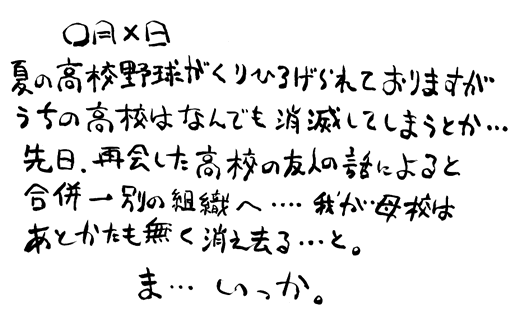 〇月×日
夏の高校野球がくりひろげられておりますが
うちの高校はなんでも消滅してしまうとか…
先日、再会した高校の友人の話によると
合併→別の組織へ…. 我が母校は
あとかたも無く消え去る…と。
ま… いっか。